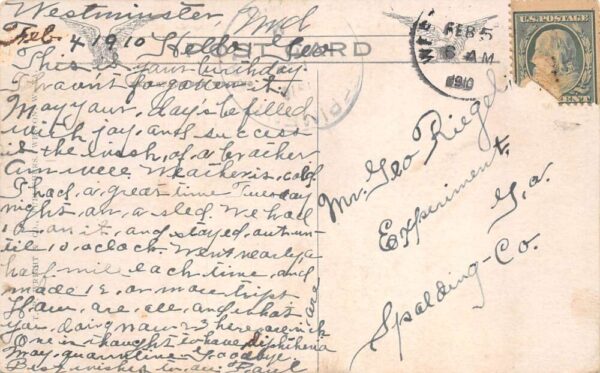 Westminster, Md
Feb 4, 1910 Hello Geo
POST CARD
This is your birthday.
I havn't forgotten it.
May your day's be filled
with joy, and success
is the wish, of a brother
Weather is cold
I had, a great time Tuesday
night, on, a sled. We had
10 on it, and stayed, out un-
till 10, o,clock. Went nearly a
half mile each time, and
made 15, or more trips
How, are, all, and what are
you, doing now 23 here are sick
One is thought to have diphtheria
May quarantine - Goodbye
Best wishes to all Paul
FEB 5
6 AM
1910
U.S. POSTAGE
2 CENTS 2
Mr. Geo Riegel,
Experiment,
Ga.
Spalding-Co.